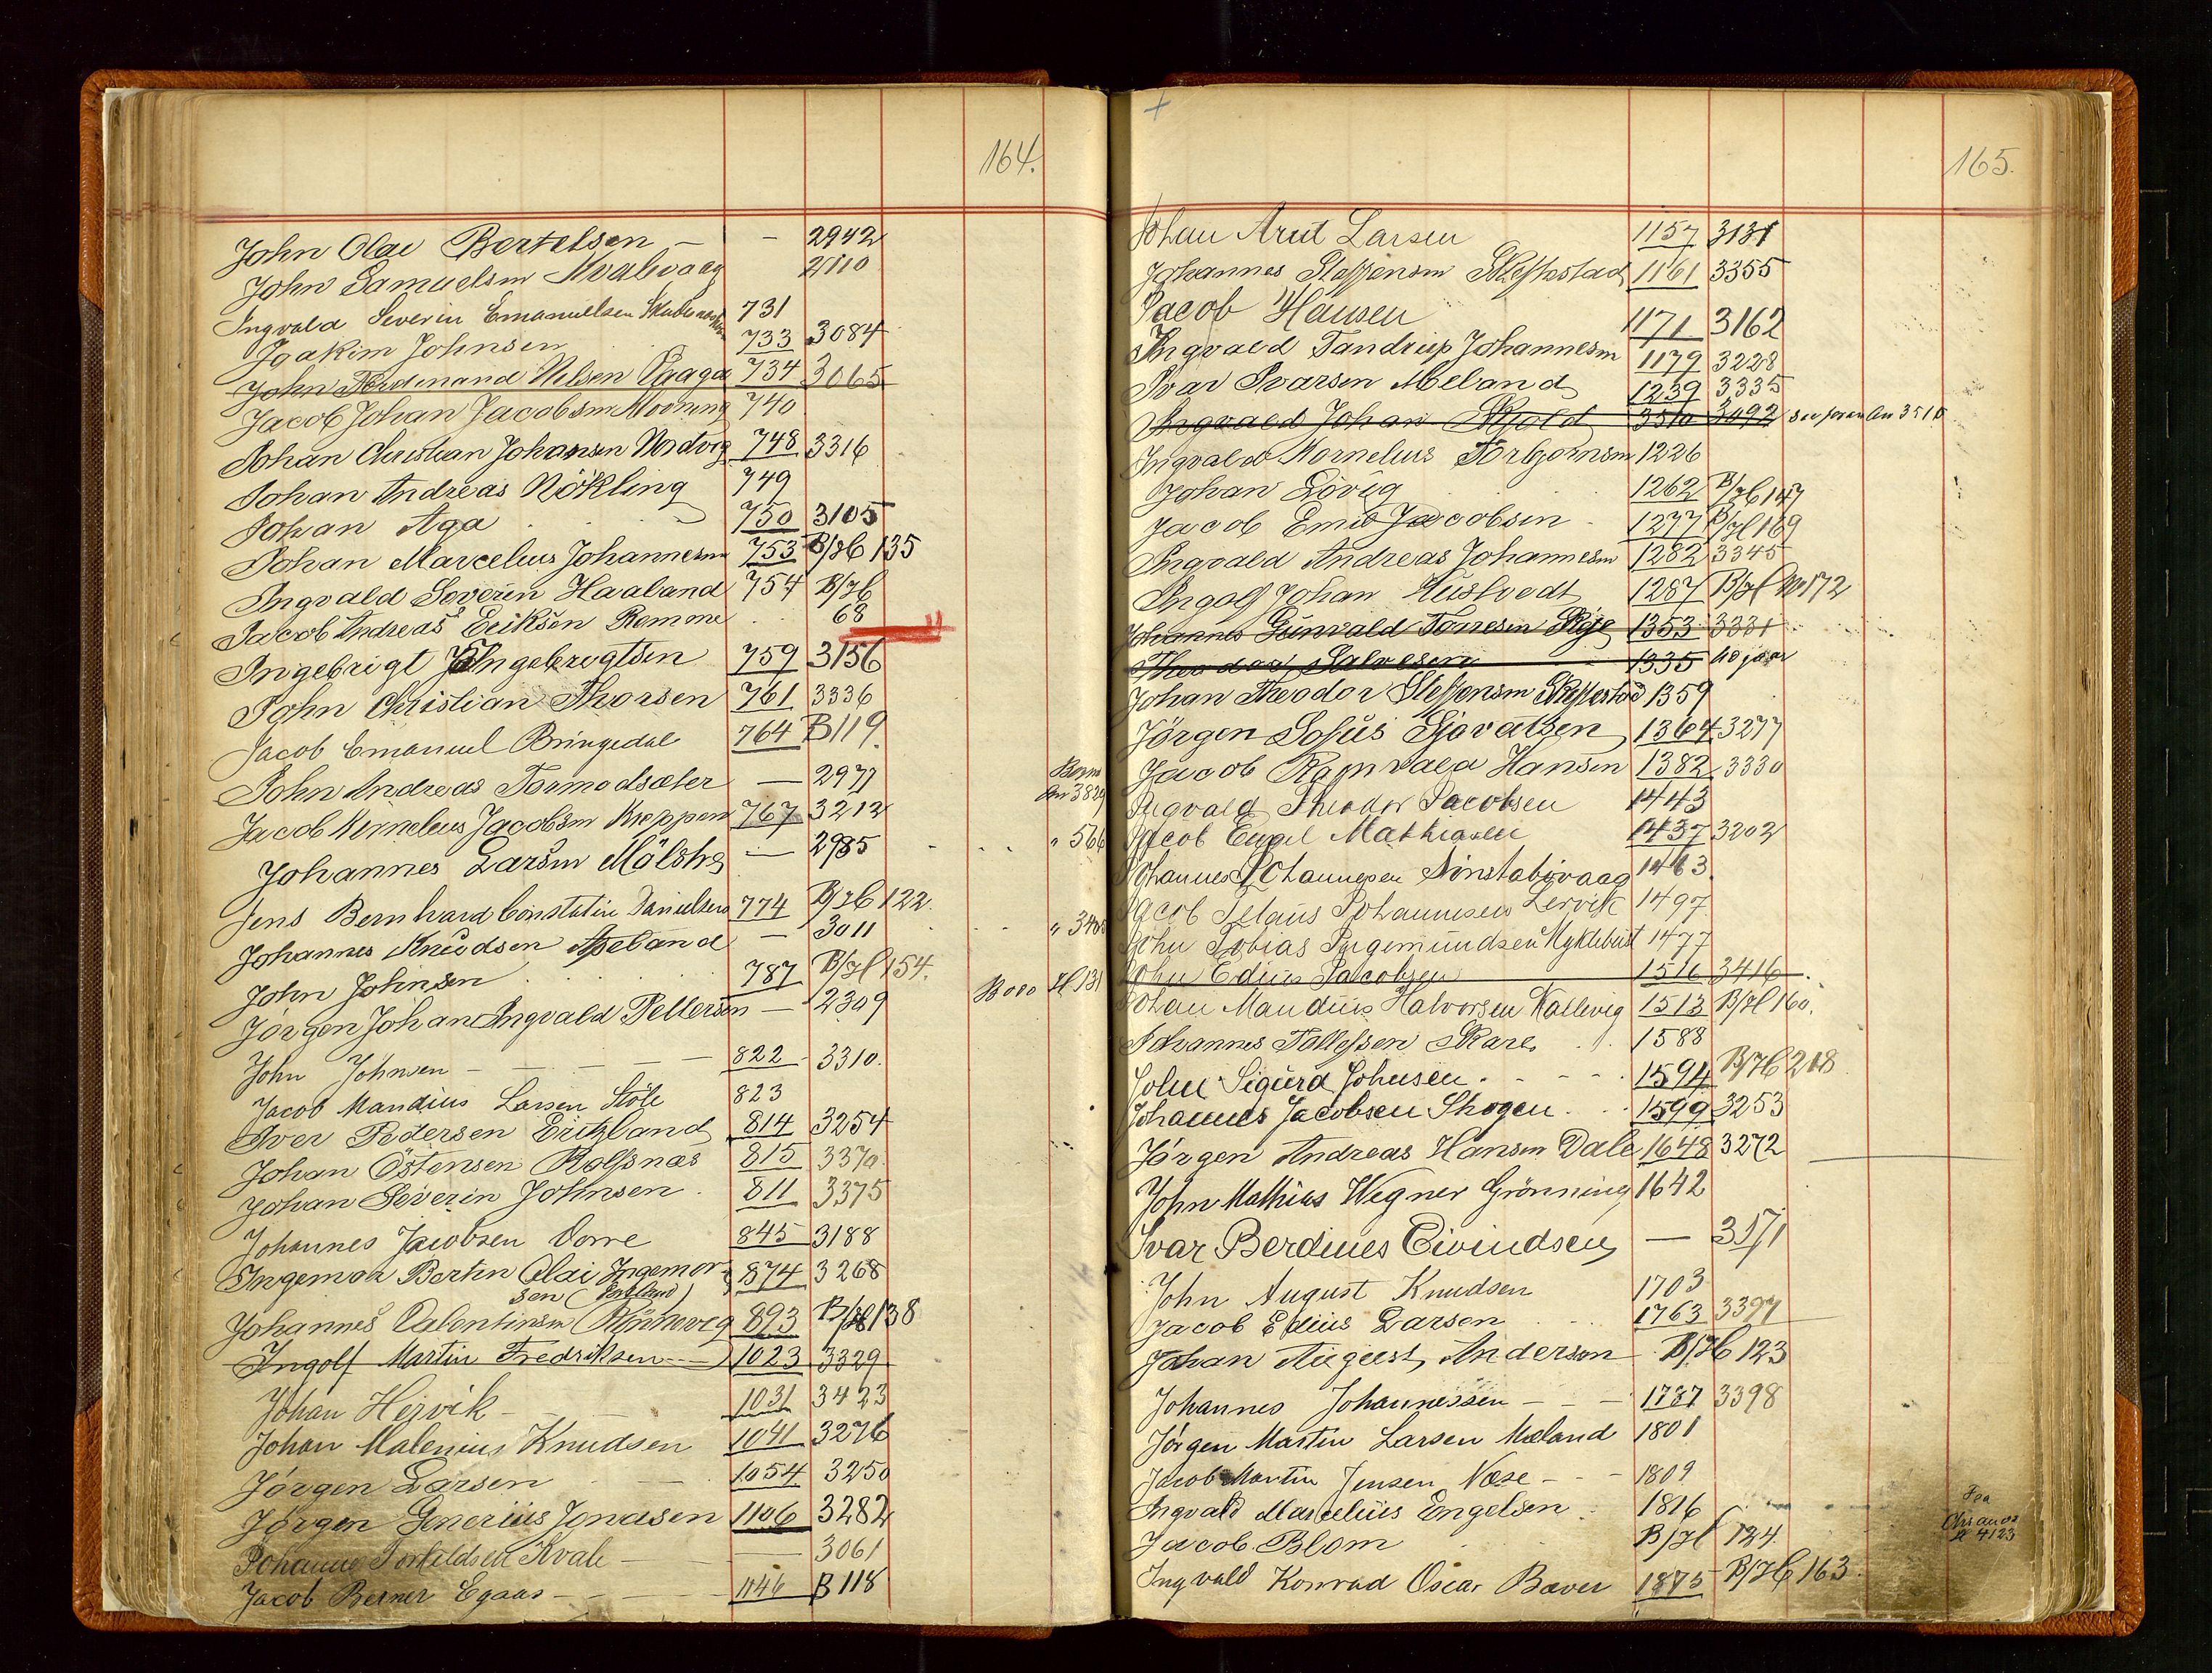 164.
John Olai Bertelsen — — 2942
John Samuelsen Kvalvaag 2110
Ingvald Severin Emanuelsen 731
Joakim Johnsen 733 3084
John Ferdinand Nilsen Vaaga 734 3065
Jacob Johan Jacobsen 740
Johan Christian Johansen Nordvig 748 3316
Johan Andreas Nökling 749
Johan Aga 750 3105
Johan Marcelius Johannesen 753 B/H 135
Ingvald Severin Haaland 754 B/H
Jacob Andreas Eriksen Remme 68
Ingebrigt Ingebrigtsen 759 3156
John Christian Thorsen 761 3336
Jacob Emanuel Bringedal 764 B 119.
John Andreas Tormodsæter — 2977
Jacob Kornelius Jacobsen Kroppen 767 3212
Johannes Larsen — 2985
Jens Bernhard Constatin Danielsen 774 B/H 122.
Johannes Knudsen Apeland — 3011
John Johnsen 787 B/H 154.
Jörgen Johan Ingvald Pettersen — 2309
John Johnsen — — — 822 3310.
Jacob Mandius Larsen Stöle 823
Iver Pedersen Eritzland 814 3254
Johan Östensen Rolfsnæs 815 3370.
Johan Severin Johnsen. 811 3375
Johannes Jacobsen Vorre 845 3188
Ingemor Bertin Olai Ingemor- 874 3268
sen
Johannes Valentinsen 893 B/H 138
Ingolf Martin Fredriksen — 1023 3329
Johan Hervik — 1031 3423
Johan Malenius Knudsen 1041 3276
Jörgen Larsen — 1054 3250
Jörgen Generius Jonasen 1106 3282
Johanne Torkildsen Kvale — — 3061
Jacob Berner Egaas — — — 1146 B 118
165.
Johan Arnt Larsen 1157 3131
Johannes Steffensen Skeffestad 1161 3355
Jacob Hansen 1171 3162
Ingvald Tandrup Johannesen 1179 3228
Ivar Ivarsen Meland 1239 3335
Ingvald Johan Skjold 3510 3092
Ingvald Kornelius Torbjörnsen 1226
Johan Lövig 1262 B/H 147
Jacob Emil Jacobsen 1277 B/H 169
Ingvald Andreas Johannesen 1282 3345
Ingolf Johan Hustvedt 1287 B/H No 172
Johannes Gunvald Torresen 1353 3331
Theodor Salvesen 1335
Johan Theodor Steffensen Skeffestad 1359
Jörgen Sofus Sjovatsen 1364 3277
Jacob Ragnvald Hansen 1382 3330
Bergen
An 3829 Ingvald Theodor Jacobsen 1443
" 566 Jacob Engel Mathiasen 1437 3202
Johannes Johannesen 1463.
Jacob Johannesen Lervik 1497
" 3408 John Tobias Ingemundsen Myklebust 1477
John Edius Jacobsen 1516 3416
Bero H 131 Johan Mandius Halvorsen Kallevig 1513 B/H 160.
Johannes Tollefsen Skare. 1588
John Sigurd Johnsen. 1594 B/H 218
Johannes Jacobsen Skogen. 1599 3253
Jörgen Andreas Hansen Dale 1648 3272
John Mathias Wegner Grönning 1642
Ivar Berdines Eivindsen — 3171
John August Knudsen 1703
Jacob Edius Larsen 1763 3397
Johan August Anderson B/H 123
Johannes Johannessen — — — 1737 3398
Jörgen Martin Larsen Mæland 1801
Jacob Martin Jensen Næse — 1809
Ingvald Marcelius Engelsen 1816
Jacob Blom B/H 134.
Fra
A 4123
Ingvald Konrad Oscar Bæver 1875 B/H 163.